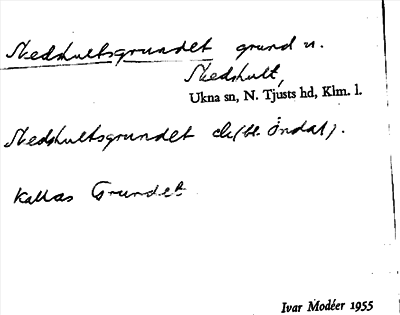 Skedshultsgrundet grund n.
Skedshult,
Ukna sn, N. Tjusts hd, Klm. l.
Skedshultsgrundet ek (bl. Öndal).
Kallas Grundet
Ivar Modéer 1955